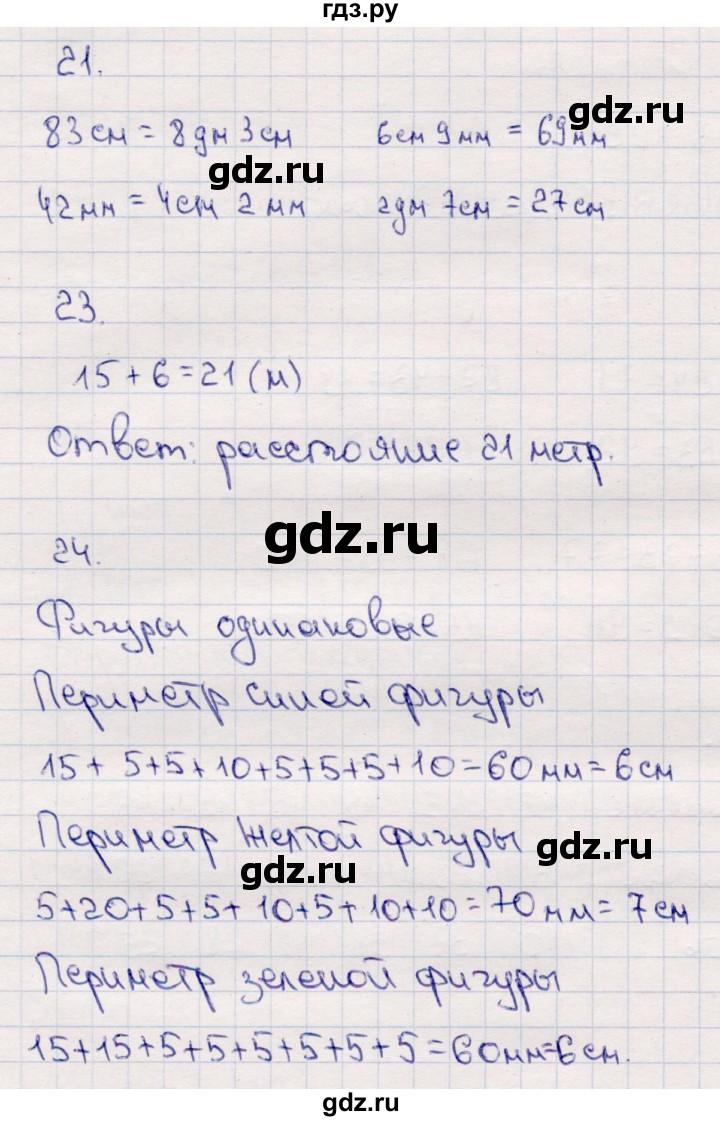 гдз.ру
21.
83 см = 8 дм 3 см 6 см 9 мм = 69 мм
gdz.ru
gdz.ru
42 мм = 4 см 2 мм 2 дм 7 см = 27 см
23.
15 + 6 = 21 (м)
Ответ: расстояние 21 метр.
gdz.ru
24.
Фигуры одинаковые
Периметр синей фигуры
15 + 5 + 5 + 10 + 5 + 5 + 5 + 10 = 60 мм = 6 см
Периметр желтой фигуры
gdz.ru
gdz.ru
5 + 20 + 5 + 5 + 10 + 5 + 10 + 10 = 70 мм = 7 см
Периметр зеленой фигуры
15 + 15 + 5 + 5 + 5 + 5 + 5 + 5 = 60 мм = 6 см.
gdz.ru